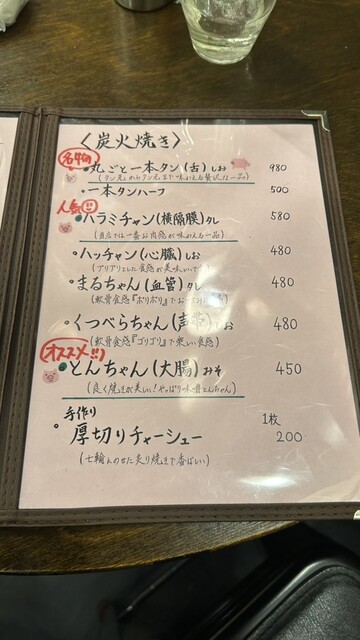 〈炭火焼き〉
名物
・丸ごと一本タン(舌)しお 980
(タン先からタン元まで味わえる贅沢な一品)
・一本タンハーフ 500
人気
・ハラミチャン(横隔膜)タレ 580
(当店では一番お肉感が味わえる一品)
・ハッチャン(心臓)しお 480
(プリプリとした食感が美味い
・まるちゃん(血管)タレ 480
(軟骨食感『ポリポリ』で
・くつべらちゃん(声帯)しお 480
(軟骨食感『ゴリゴリ』で楽しい食感)
オススメ!!
・とんちゃん(大腸)みそ 450
(良く焼きが美しい!やっぱり味噌とんちゃん)
手作り 1枚
・厚切りチャーシュー 200
(七輪にのせた炙り焼きで香ばしい)